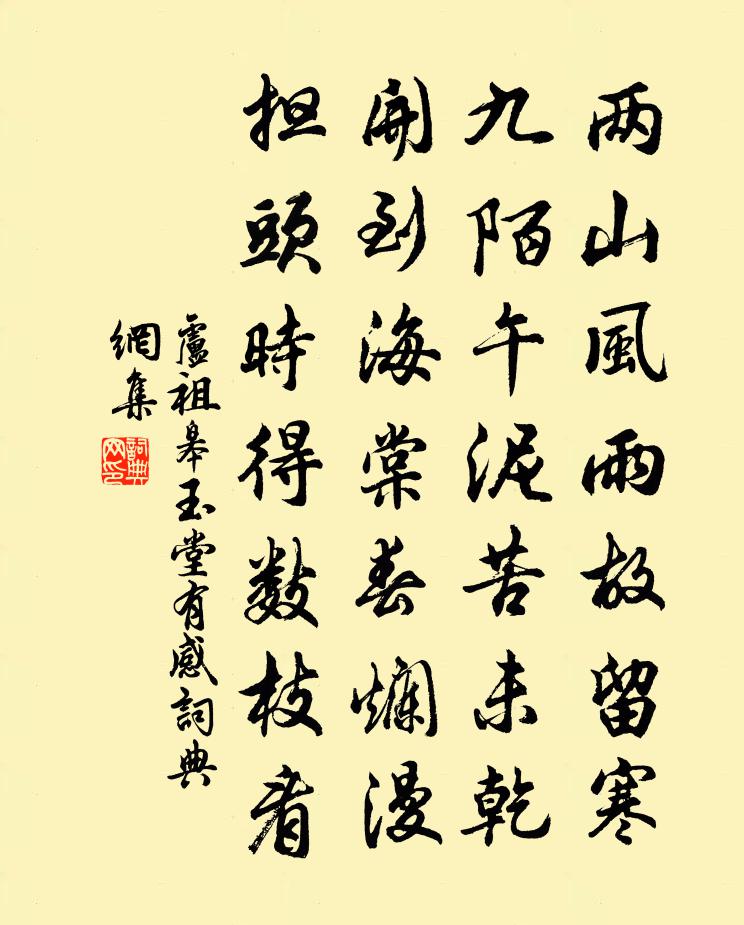 两山風雨故留寒
九陌午泥苦未乾
開到海棠春爛漫
担頭時得數枝看
盧祖皋玉堂有感詞典
網集
詞典網印